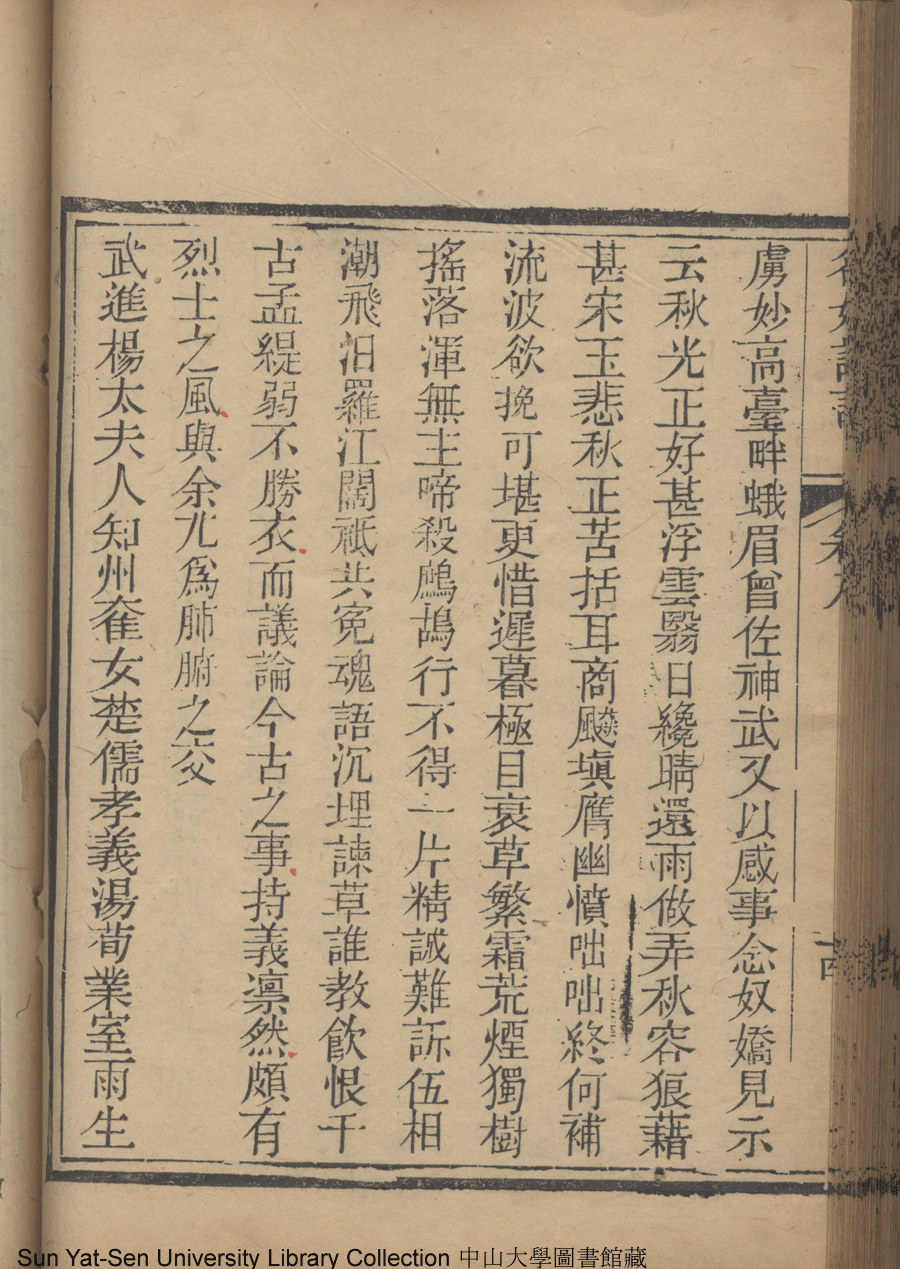 虜妙高臺畔蛾眉曾佐神武又以感事念奴嬌見示
云秋光正好甚浮雲翳日纔晴還雨做弄秋容狼藉
甚宋玉悲秋正苦括耳商飇塡膺幽憤咄咄終何補
流波欲挽可堪更惜遲暮極目衰草繁霜荒煙獨樹
搖落渾無主啼殺鷓鴣行不得一片精誠難訴伍相
潮飛汨羅江闊祗共寃魂語沉埋諫草誰教飮恨千
古孟緹弱不勝衣而議論今古之事持義凛然頗有
烈士之風與余尤爲肺腑之交
武進楊太夫人知州奞女楚儒孝義湯荀業室雨生
Sun Yat-Sen University Library Collection 中山大學圖書館藏